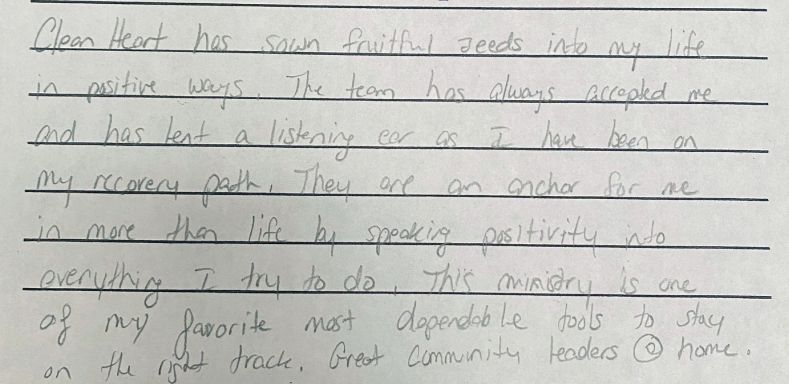 Clean Heart has sown fruitful seeds into my life
in positive ways. The team has always accepted me
and has lent a listening ear as I have been on
my recovery path. They are an anchor for me
in more than life by speaking positivity into
everything I try to do. This ministry is one
of my favorite most dependable tools to stay
on the right track. Great Community leaders @ home.